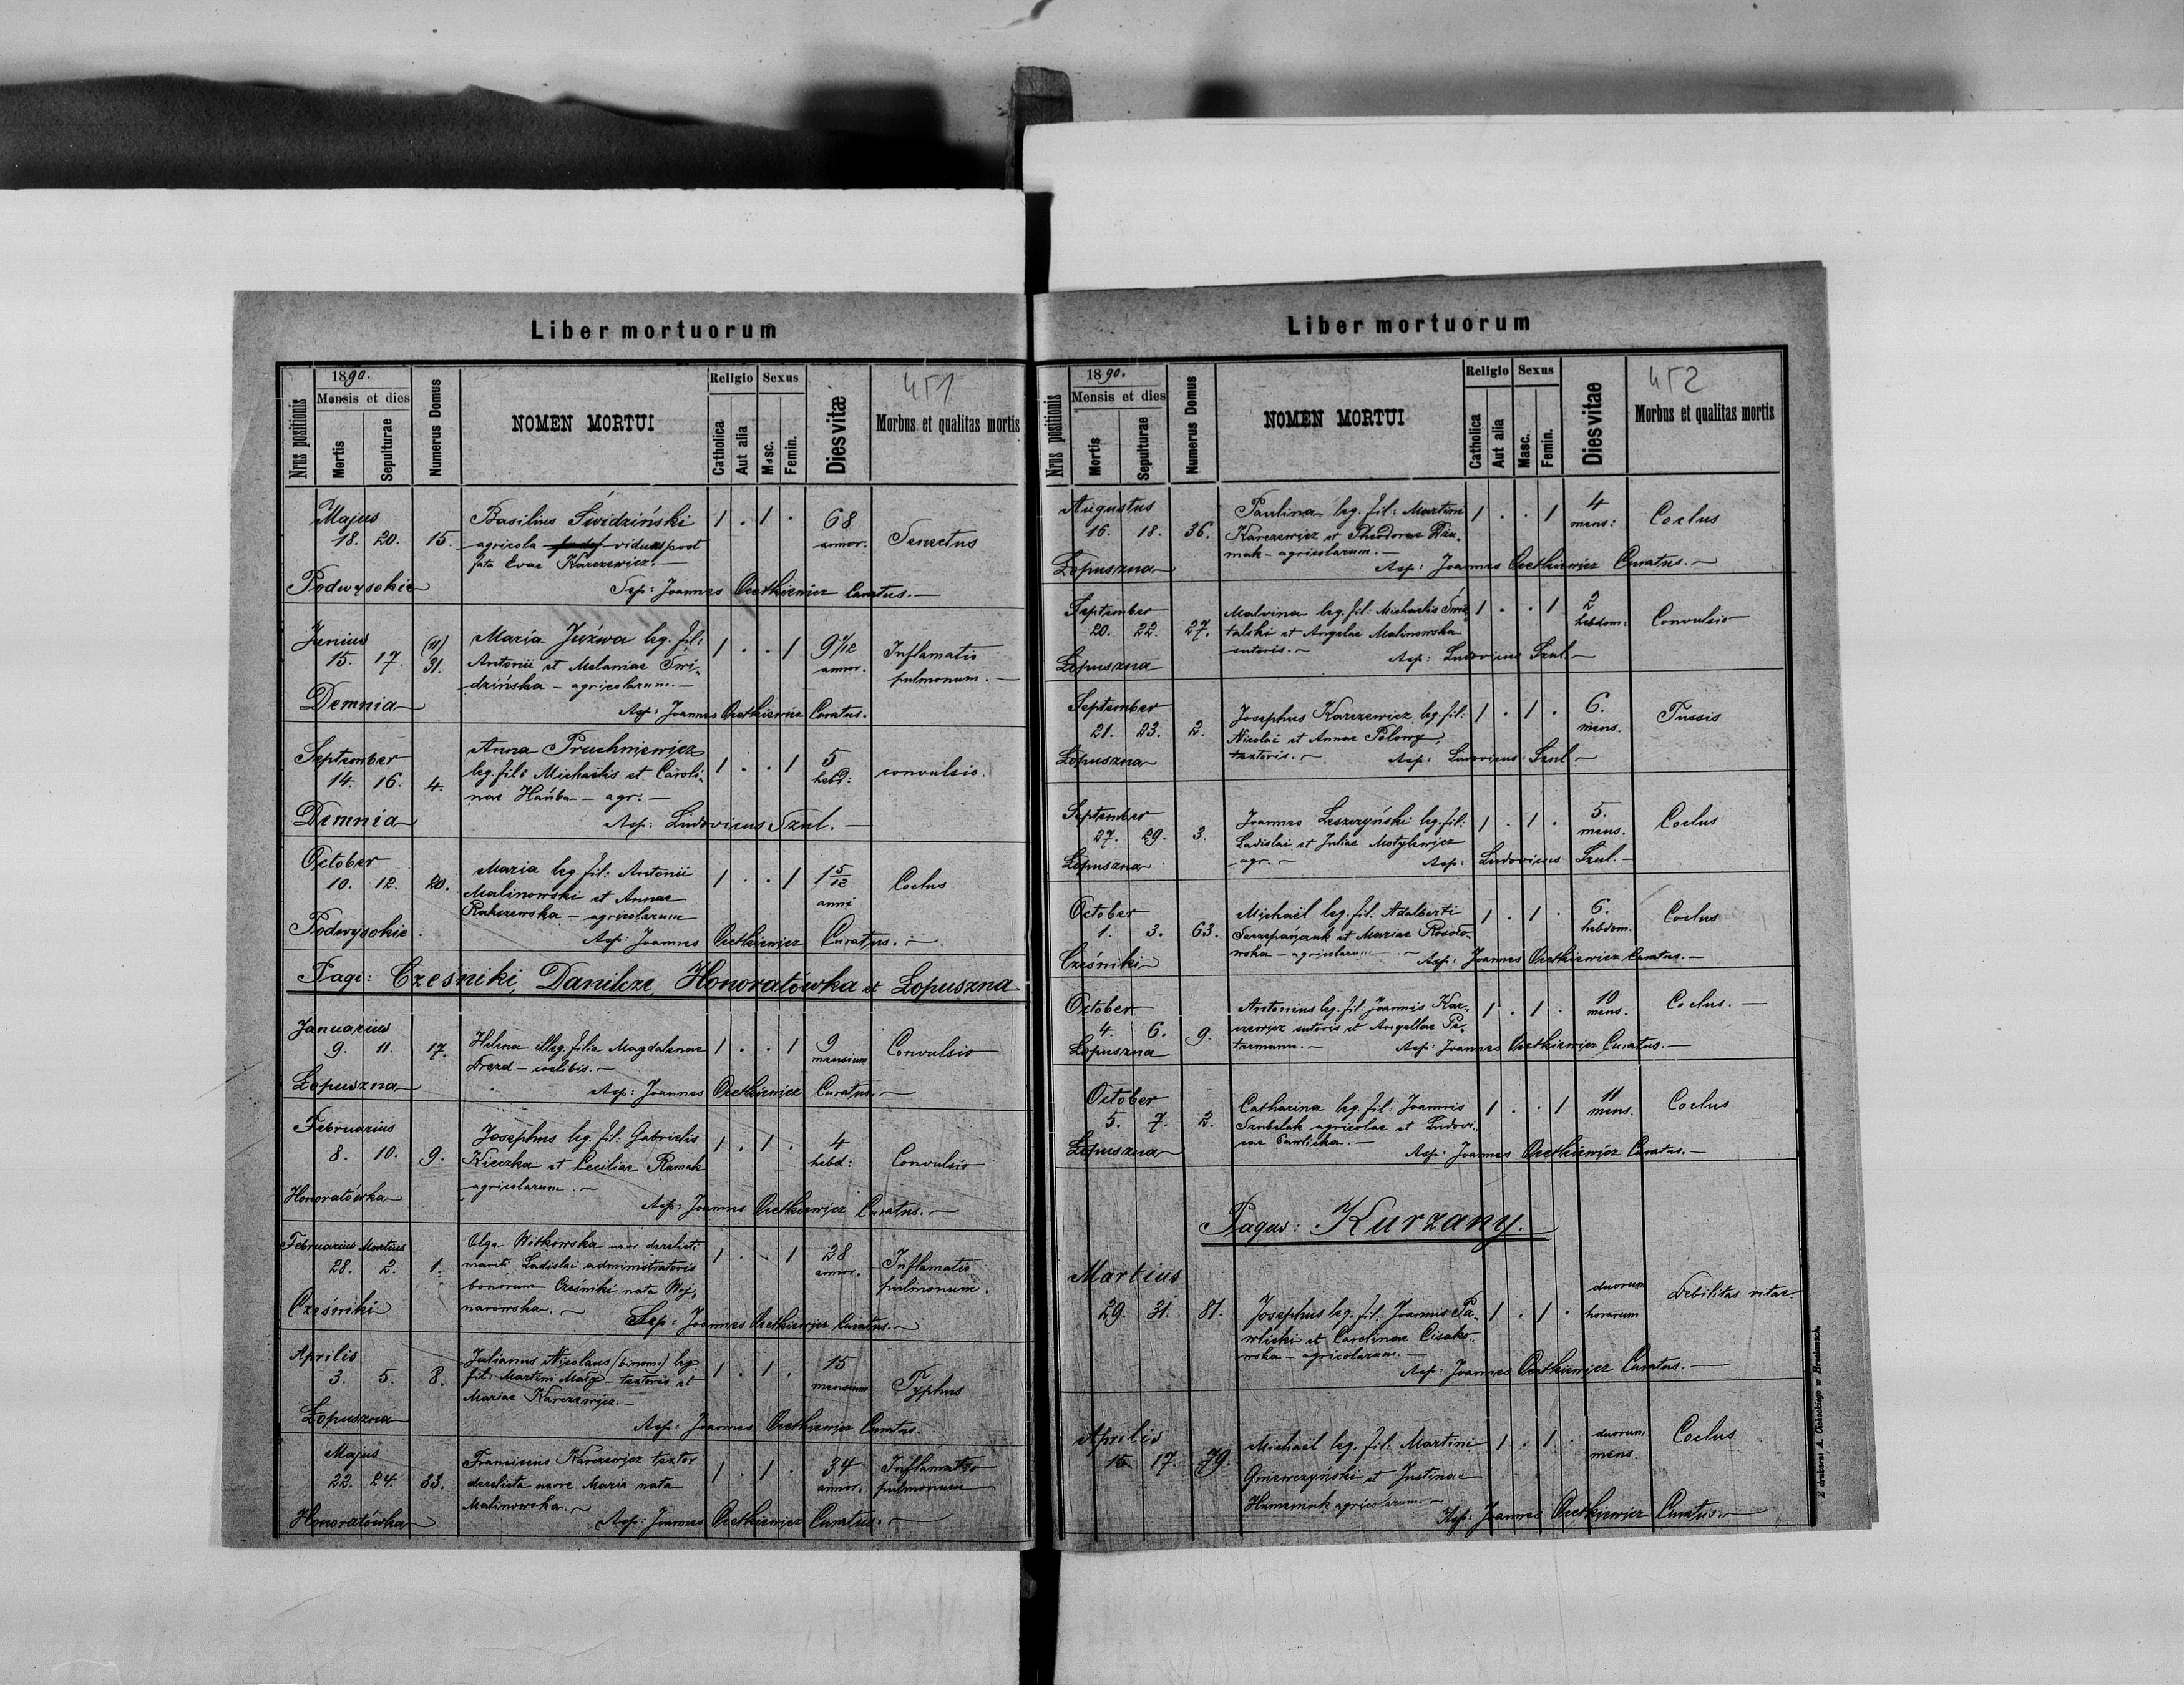 Liber mortuorum
451
Nrus positionis
1890.
Mensis et dies
Mortis
Sepulturae
Numerus Domus
NOMEN MORTUI
Religio
Catholica
Aut alia
Sexus
Masc.
Femin.
Dies vitæ
Morbus et qualitas mortis
Majus
18. 20. 15. Basilius Świdziński 1 . 1 . 68 annor. Senectus
agricola viduus post
fata Evae Karczewicz. —
Podwysokie Sep: Joannes Oćetkiewicz Curatus. —
Junius
15. 17. (11) 31. Maria Juźwa leg. fil: 1 . . 1 9 1/12 annor. Inflamatio pulmonum. —
Antonii et Melaniae Świ-
dzińska — agricolarum. —
Demnia Asp: Joannes Oćetkiewicz Curatus.
September
14. 16. 4. Anna Pruchniewicz 1 . . 1 5 hebd: convulsio.
leg. fil: Michaëlis et Caroli-
nae Hańba — agr. —
Demnia Asp: Ludovicus Szul. —
October
10. 12. 20. Maria leg. fil: Antonii 1 . . 1 1 5/12 anni Coclus
Malinowski et Annae
Rakszewska — agricolarum
Podwysokie. Asp: Joannes Oćetkiewicz Curatus. —
Pagi: Cześniki, Danilcze, Honoratówka et Łopuszna
Januarius
9. 11. 17. Helena illeg. filia Magdalenae 1 . . 1 9 mensium Convulsio
Drozd — coelibis. —
Łopuszna Asp: Joannes Oćetkiewicz Curatus. —
Februarius
8. 10. 9. Josephus leg. fil: Gabrielis 1 . 1 . 4 hebd: Convulsio
Kiczka et Ceciliae Ramak
agricolarum. —
Honoratówka Asp: Joannes Oćetkiewicz Curatus. —
Februarius Martius
28. 2. 1. Olga Witkowska uxor derelicti 1 . . 1 28 annor. Inflamatio pulmonum.
mariti Ladislai administratoris
bonorum Cześniki nata Woj-
narowska. —
Cześniki Sep: Joannes Oćetkiewicz Curatus. —
Aprilis
3. 5. 8. Julianus Nicolaus (binom:) leg. 1 . 1 . 15 mensium Typhus
fil: Martini — textoris et
Mariae Karczewicz. —
Łopuszna Asp: Joannes Oćetkiewicz Curatus.
Majus
22. 24. 33. Franciscus Karczewicz textor 1 . 1 . 34 annor. Inflamatio pulmonum
derelicta uxore Maria nata
Malinowska. —
Honoratówka Asp: Joannes Oćetkiewicz Curatus. —
Liber mortuorum
452
Nrus positionis
1890.
Mensis et dies
Mortis
Sepulturae
Numerus Domus
NOMEN MORTUI
Religio
Catholica
Aut alia
Sexus
Masc.
Femin.
Dies vitae
Morbus et qualitas mortis
Augustus
16. 18. 36. Paulina leg. fil: Martini 1 . . 1 4 mens: Coclus
Karczewicz et Theodorae
mak — agricolarum. —
Łopuszna Asp: Joannes Oćetkiewicz Curatus. —
September
20. 22. 27. Malvina leg. fil: Michaelis 1 . . 1 2 hebdom: Convulsio
talski et Angelae Malinowska
sutoris. —
Łopuszna Asp: Ludovicus Szul. —
September
21. 23. 2. Josephus Karczewicz leg. fil: 1 . 1 . 6. mens. Tussis
Nicolai et Annae Pelowy,
textoris. —
Łopuszna Asp: Ludovicus Szul —
September
27. 29. 3. Joannes Leszczyński leg. fil: 1 . 1 . 5. mens. Coclus
Ladislai et Juliae Motylewicz
agr. —
Łopuszna Asp: Ludovicus Szul. —
October
1. 3. 63. Michaël leg. fil. Adalberti 1 . 1 . 6. hebdom. Coclus
Szczepańczuk et Mariae Rosoło-
wska — agricolarum —
Cześniki Asp: Joannes Oćetkiewicz Curatus. —
October
4. 6. 9. Antonius leg. fil: Joannis Kar- 1 . 1 . 10 mens. Coclus. —
czewicz sutoris et Angellae Pe-
termann. —
Łopuszna Asp: Joannes Oćetkiewicz Curatus. —
October
5. 7. 2. Catharina leg. fil: Joannis 1 . . 1 11 mens. Coclus
Szubelak agricolae et Ludovi-
cae Pawlicka. —
Łopuszna Asp: Joannes Oćetkiewicz Curatus. —
Pagus: Kurzany.
Martius
29. 31. 81. Josephus leg. fil. Joannis Pa- 1 . 1 . duorum horarum Debilitas vitae
wlicki et Carolinae Cisako-
wska — agricolarum. —
Asp: Joannes Oćetkiewicz Curatus. —
Aprilis
15 17. 79. Michaël leg. fil: Martini 1 . 1 . duorum mens. Coclus
Gniewczyński et Justinae
agricolarum. —
Asp: Joannes Oćetkiewicz Curatus. —
Z drukarni A. w Brzeżanach.